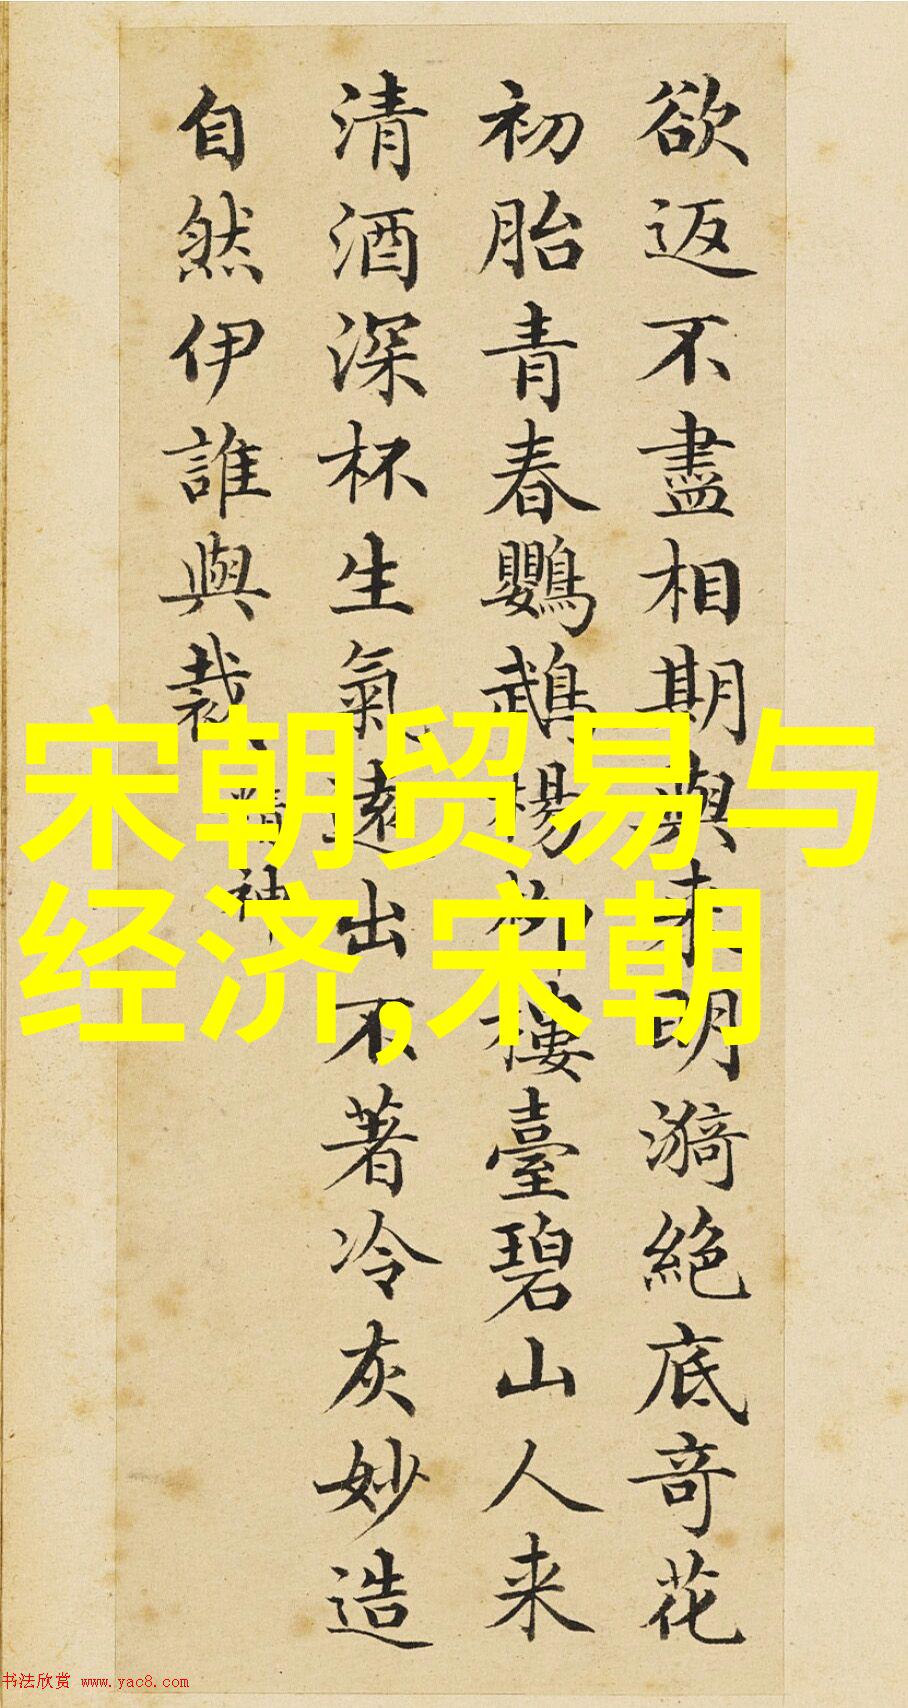 欲返不盡相期與来明漪絕底奇花
初胎青春鸚鵡楊柳樓臺碧山人来
清酒深杯生氣遠出不著冷灰妙造
自然伊誰與裁
精神
宋朝贸易与
经济,宋朝
书法欣赏 www.yac8.com